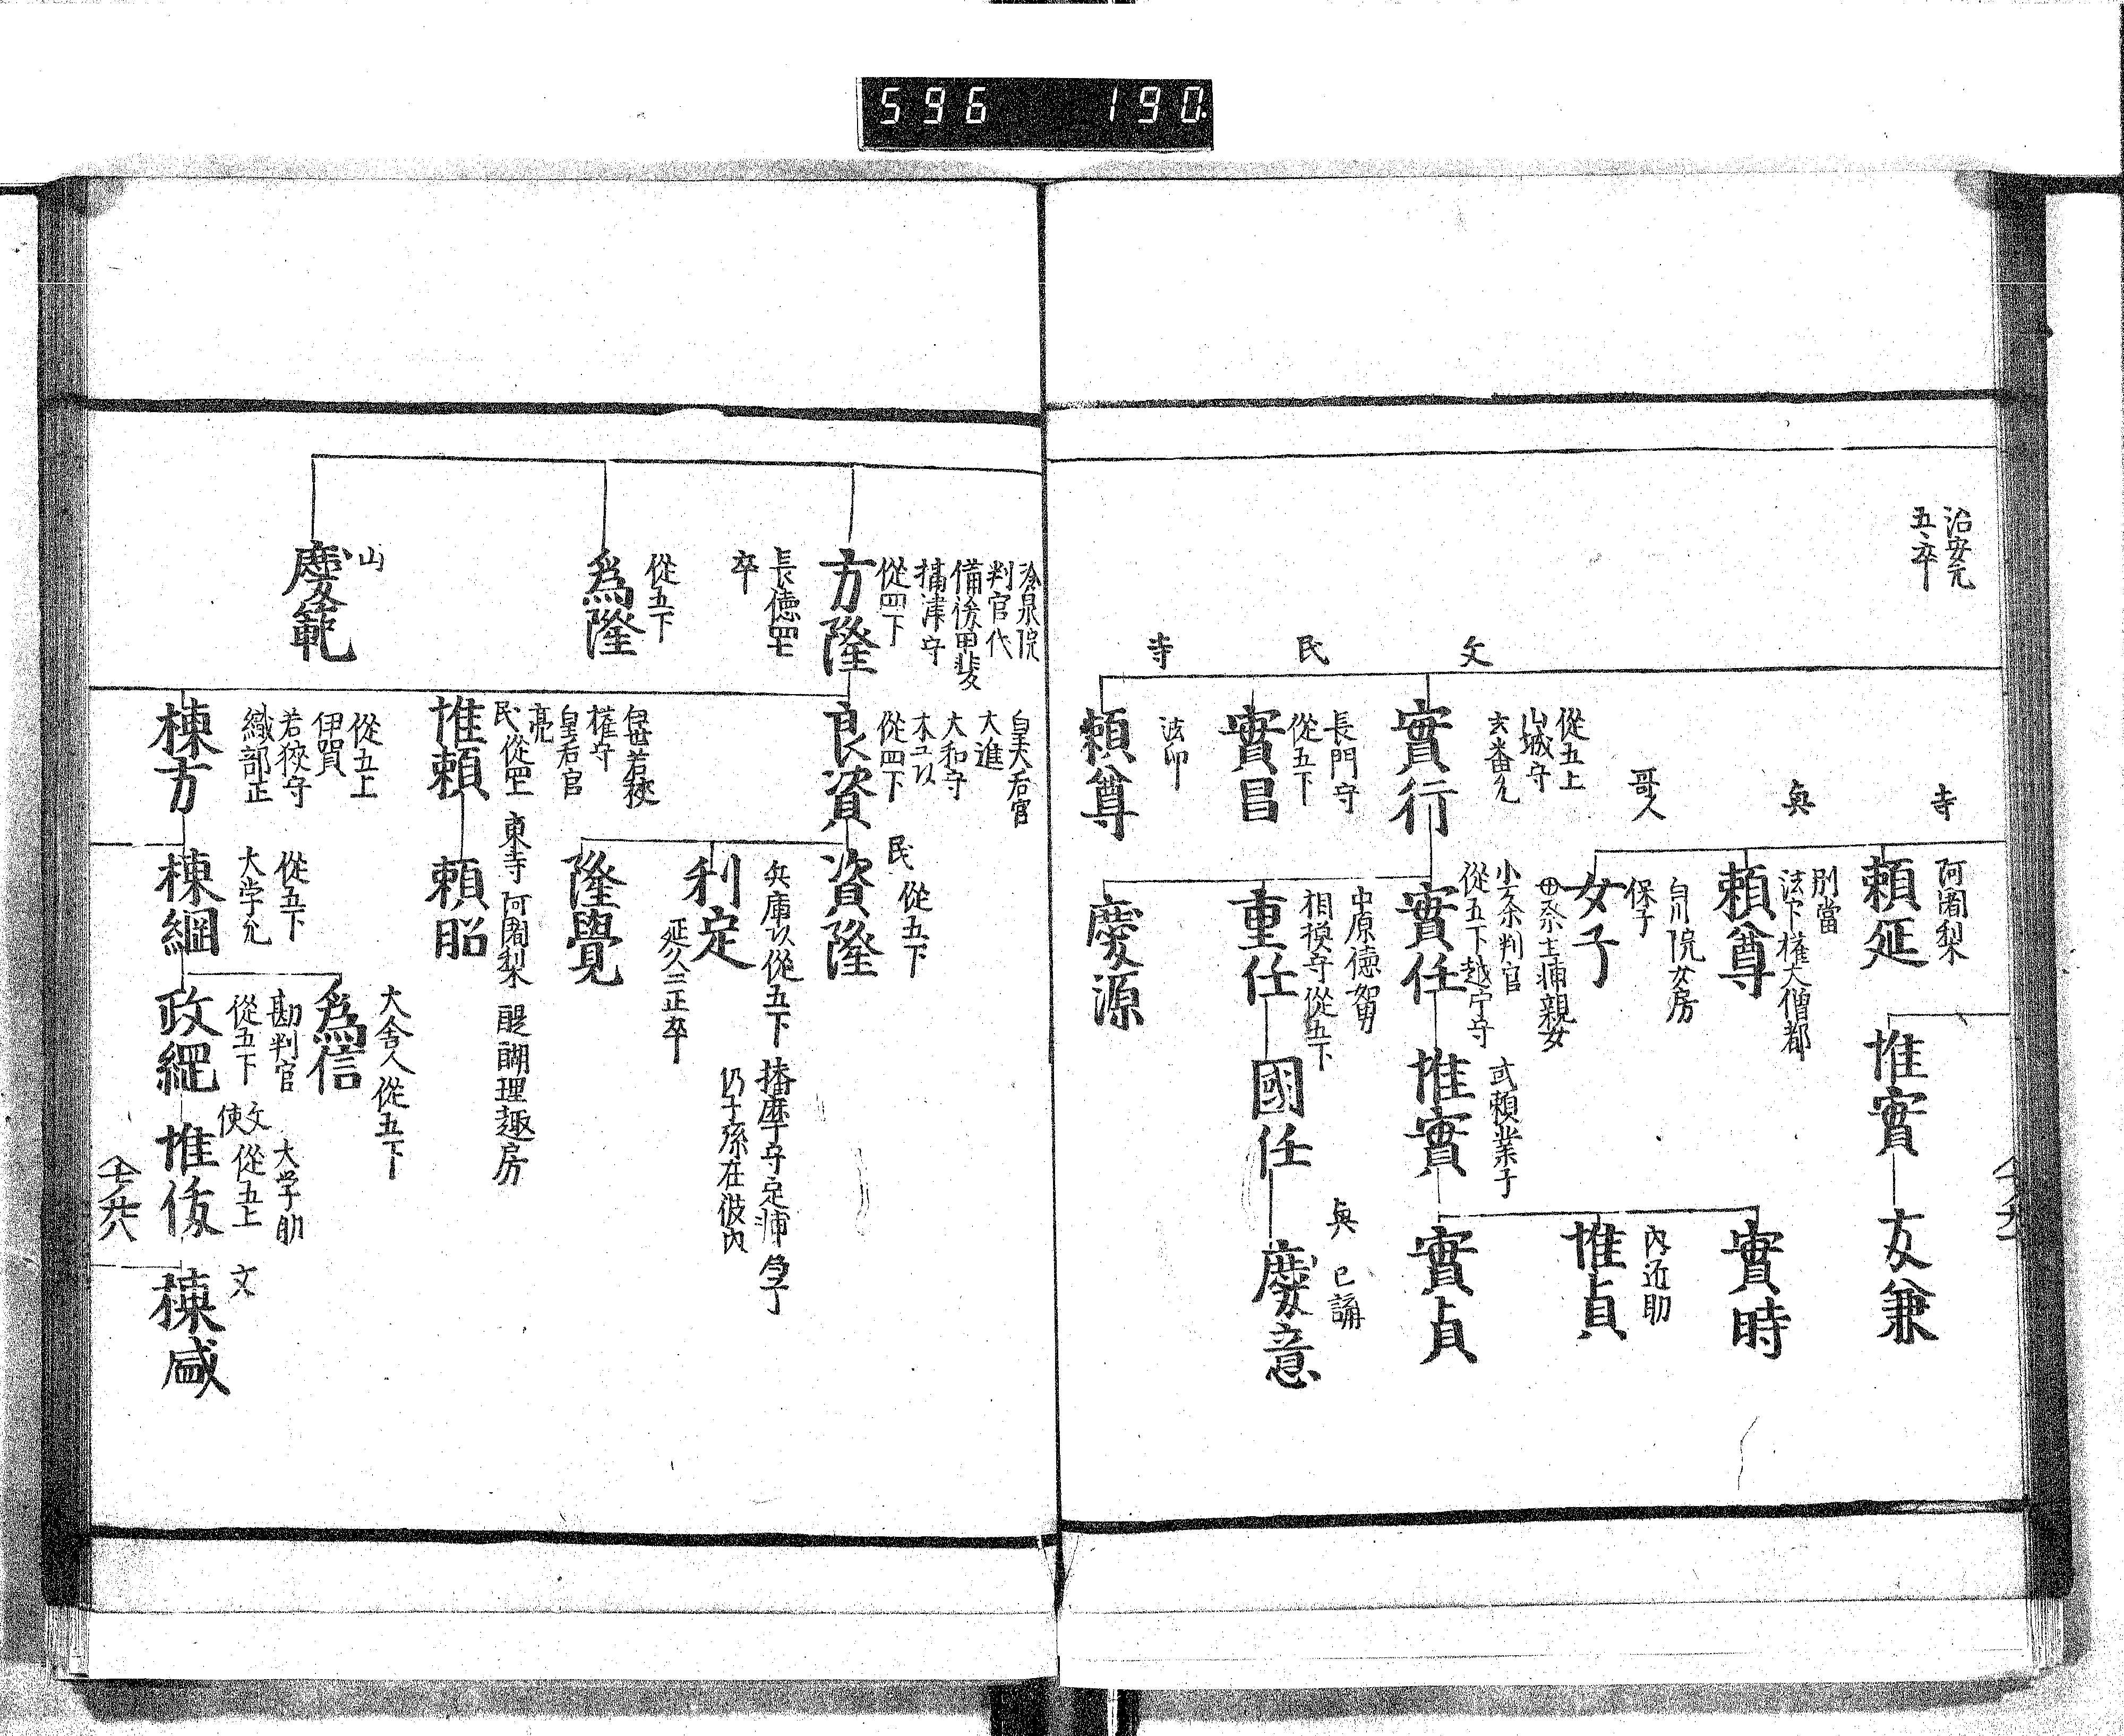 596 190
治安元
五ヽ卒
寺
阿闍梨
頼延
惟實
友兼
興
別當
法下權大僧都
頼尊
哥人
白川院女房
保子
女子
母祭主輔親女
實時
内近助
惟貞
文
從五上
山城守
玄番允
實行
小一条判官
從五下越中守
實任
或頼業子
惟實
實貞
民
長門守
從五下
實昌
中原德舅
相模守從五下
重任
國任
興 已講
慶意
寺
法印
頼尊
慶源
冷泉院
判官代
備後甲斐
攝津守
從四下
方隆
長德四七
卒
皇太后宮
大進
大和守
從四下
良資
民 從五下
資隆
兵庫以從五下 播磨守定輔
仍子孫在彼内
利定
延久三正卒
隆覺
從五下
爲隆
若狹
權守
皇后宮
亮
民從四上
惟頼
東寺 阿闍梨 醍醐理趣房
頼昭
山
慶範
從五上
伊賀
若狹守
織部正
棟方
從五下
大学允
棟綱
大舍人從五下
爲信
勘判官
從五下
政綱
大学助
使文從五上
惟俊
文
棟咸